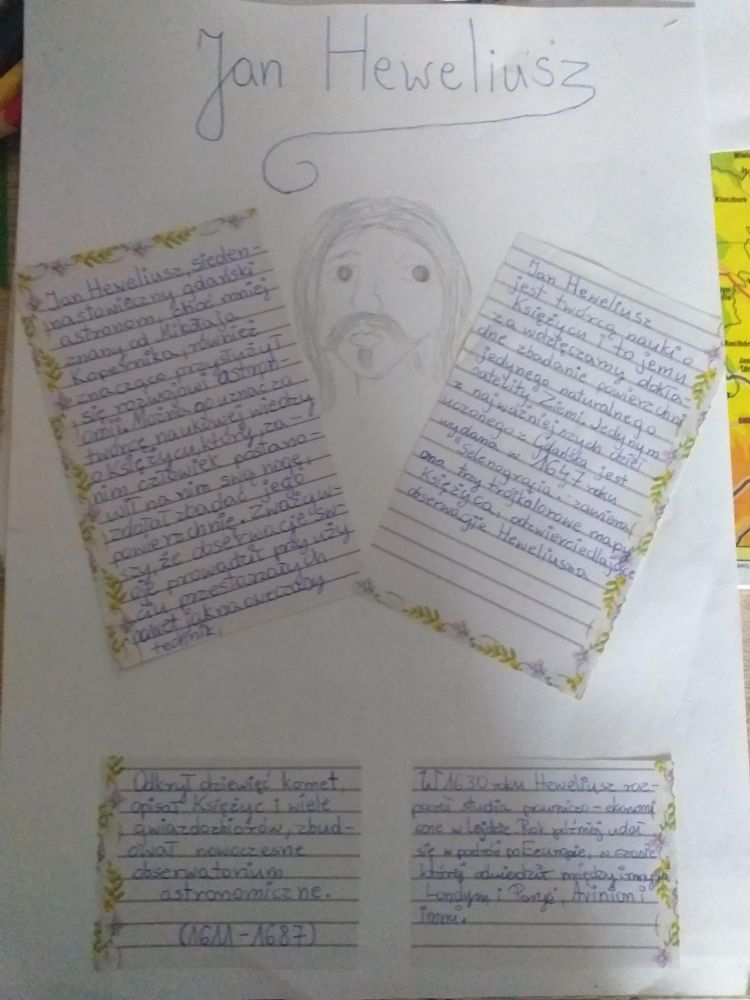 Jan Heweliusz
Jan Heweliusz, sieden-
nastowieczny gdański
astronom, choć mniej
znany od Mikołaja
Kopernika, również
znacząco przysłużył
się rozwojowi astron-
omii. Można go uznać za
twórcę naukowej wiedzy
o Księżycu, który, za-
nim człowiek postano-
wił na nim swą nogę,
zdołał zbadać jego
powierzchnię. Zważyw-
szy, że obserwacje sw-
oje prowadził przy uży
ciu przestarzałych
nawet jak na owe czasy
technik.
Jan Heweliusz
jest twórcą nauki o
Księżycu i to jemu
za wdzięczamy dokła-
dne zbadanie powierzchni
jedynego naturalnego
satelity Ziemi. Jedynym
z najważniejszych dzieł
uczonego z Gdańska jest
wydana w 1647 roku
"Selenografia": zawierał
ona trzy trójkolorowe mapy
Księżyca, odzwierciedlające
obserwacje Heweliusza
Odkrył dziewięć komet,
opisał Księżyc i wiele
gwiazdozbiorów, zbud-
ował nowoczesne
obserwatorium
astronomiczne.
(1611-1687)
W 1630 roku Heweliusz roz-
począł studia prawniczo-ekonomi
czne w Lejdzie. Rok później udał
się w podróż po Europie, w czasie
której odwiedził między innymi
Londyn i Paryż, Avinion i
inni.